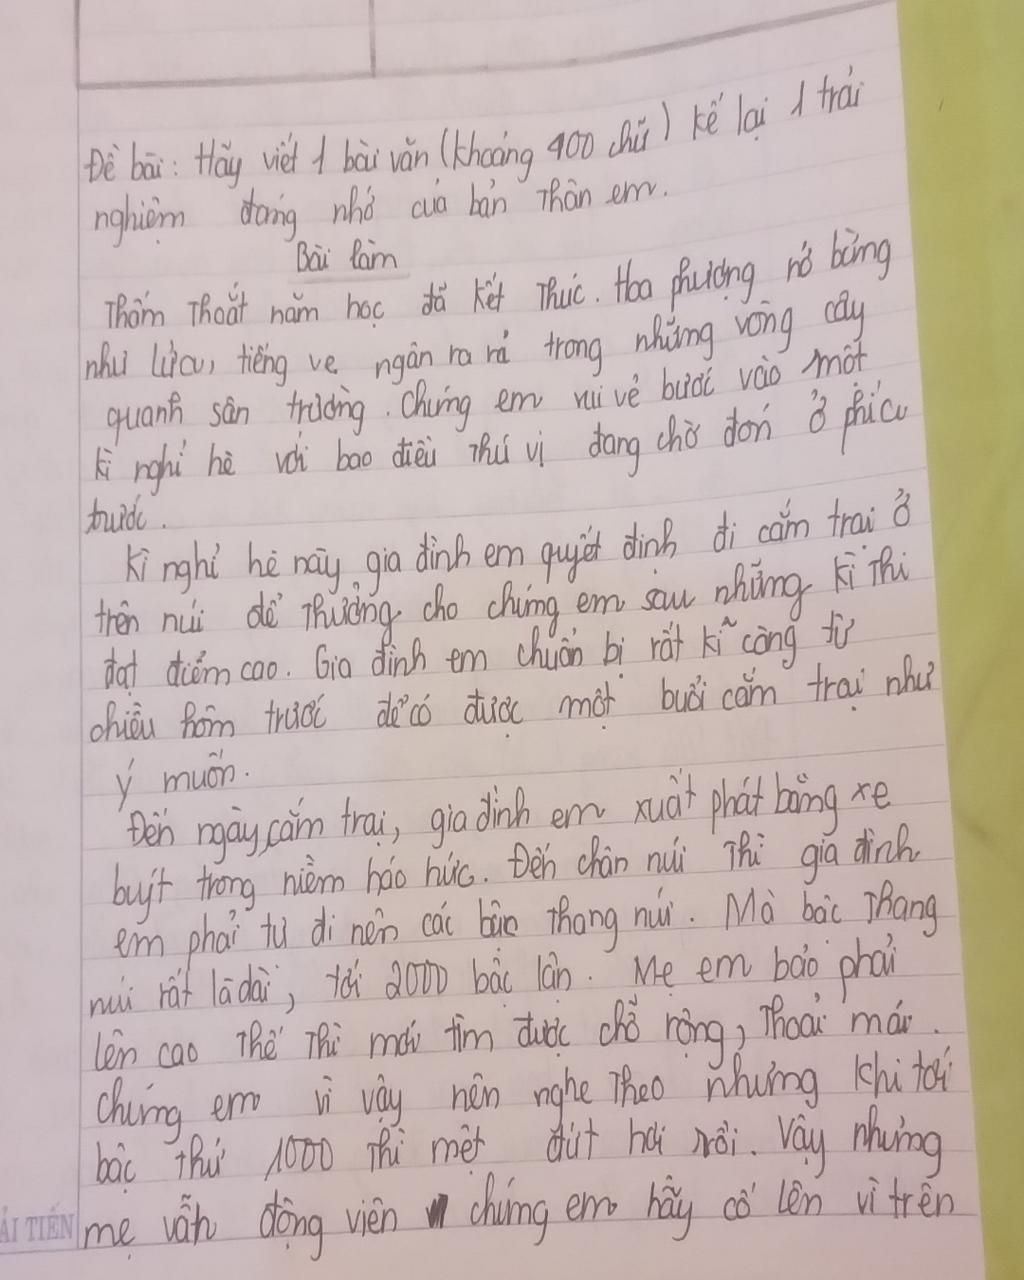 Đề bài: Hãy viết 1 bài văn (khoảng 400 chữ) kể lại 1 trải
nghiệm đáng nhớ của bản thân em.
Bài làm
Thấm thoắt năm học đã kết thúc. Hoa phượng nở bừng
như lửa, tiếng ve ngân ra rả trong những vòng cây
quanh sân trường. Chúng em vui vẻ bước vào một
kì nghỉ hè với bao điều thú vị đang chờ đón ở phía
trước.
Kì nghỉ hè này, gia đình em quyết định đi cắm trại ở
trên núi để thưởng cho chúng em sau những kì thi
đạt điểm cao. Gia đình em chuẩn bị rất kĩ càng từ
chiều hôm trước để có được một buổi cắm trại như
ý muốn.
Đến ngày cắm trại, gia đình em xuất phát bằng xe
buýt trong niềm háo hức. Đến chân núi thì gia đình
em phải tự đi nên các bậc thang núi. Mà bậc thang
núi rất là dài, tới 2000 bậc lận. Mẹ em bảo phải
lên cao thế thì mới tìm được chỗ rộng, thoải mái.
Chúng em vì vậy nên nghe theo nhưng khi tới
bậc thứ 1000 thì mệt đứt hơi rồi. Vậy nhưng
mẹ vẫn động viên chúng em hãy cố lên vì trên
ẢI TIẾN